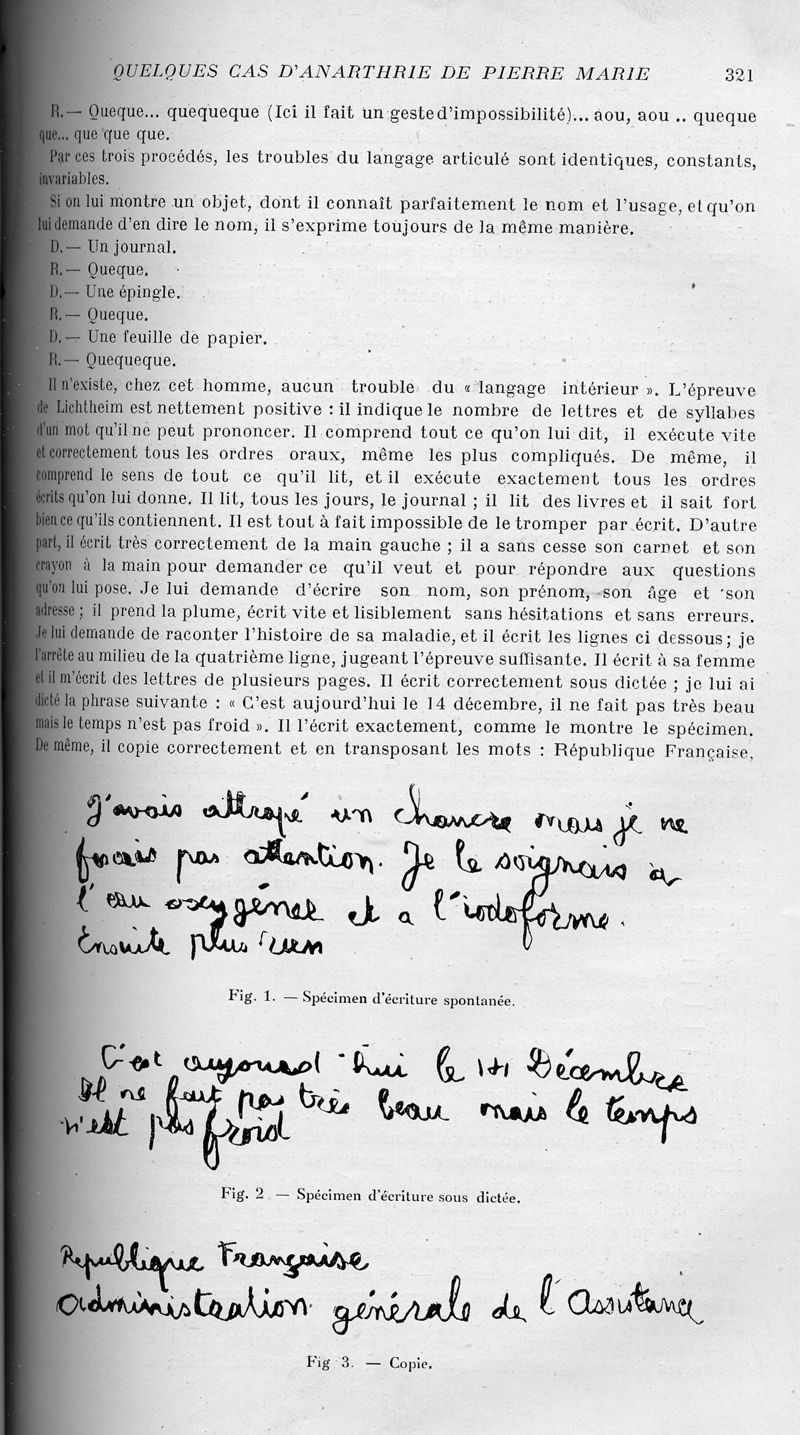 QUELQUES CAS D'ANARTHRIE DE PIERRE MARIE 321
R.— Queque... quequeque (Ici il fait un geste d'impossibilité)... aou, aou .. queque
que... que que que.
Par ces trois procédés, les troubles du langage articulé sont identiques, constants,
invariables.
Si on lui montre un objet, dont il connaît parfaitement le nom et l'usage, et qu'on
lui demande d'en dire le nom, il s'exprime toujours de la même manière.
D.— Un journal.
R.— Queque.
D.— Une épingle.
R.— Queque.
D.— Une feuille de papier.
R.— Quequeque.
Il n'existe, chez cet homme, aucun trouble du « langage intérieur ». L'épreuve
de Lichtheim est nettement positive : il indique le nombre de lettres et de syllabes
d'un mot qu'il ne peut prononcer. Il comprend tout ce qu'on lui dit, il exécute vite
et correctement tous les ordres oraux, même les plus compliqués. De même, il
comprend le sens de tout ce qu'il lit, et il exécute exactement tous les ordres
écrits qu'on lui donne. Il lit, tous les jours, le journal ; il lit des livres et il sait fort
bien ce qu'ils contiennent. Il est tout à fait impossible de le tromper par écrit. D'autre
part, il écrit très correctement de la main gauche ; il a sans cesse son carnet et son
crayon à la main pour demander ce qu'il veut et pour répondre aux questions
qu'on lui pose. Je lui demande d'écrire son nom, son prénom, son âge et son
adresse ; il prend la plume, écrit vite et lisiblement sans hésitations et sans erreurs.
Je lui demande de raconter l'histoire de sa maladie, et il écrit les lignes ci dessous ; je
l'arrête au milieu de la quatrième ligne, jugeant l'épreuve suffisante. Il écrit à sa femme
et il m'écrit des lettres de plusieurs pages. Il écrit correctement sous dictée ; je lui ai
dicté la phrase suivante : « C'est aujourd'hui le 14 décembre, il ne fait pas très beau
mais le temps n'est pas froid ». Il l'écrit exactement, comme le montre le spécimen.
De même, il copie correctement et en transposant les mots : République Française,
J'avais attrapé un chancre mais je ne
fesais pas attention. Je le soignais à
l'eau oxygénée et a l'iodoforme.
Ensuite plus rien
Fig. 1. — Spécimen d'écriture spontanée.
C'est aujourd'hui le 14 Décembre
Il ne fait pas très beau mais le temps
n'est pas froid
Fig. 2 — Spécimen d'écriture sous dictée.
Republique Française
administration générale de l'Assistance
Fig 3. — Copie.